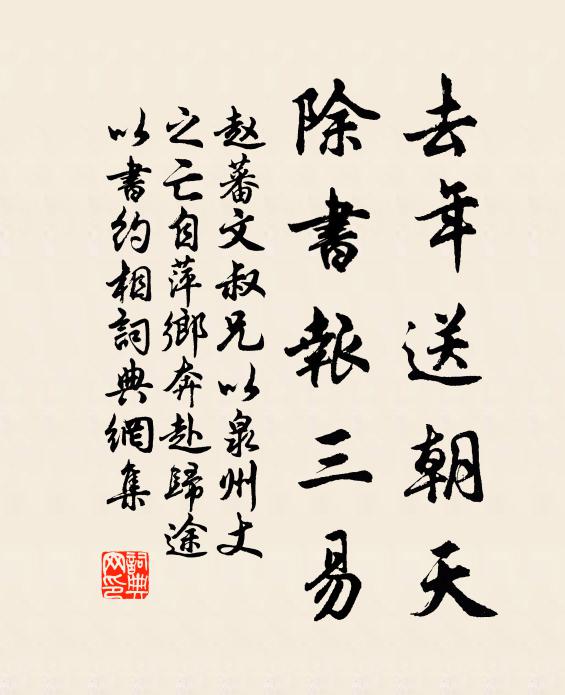 去年送朝天
除書報三易
赵蕃文叔兄以泉州丈
之亡自萍鄉奔赴歸途
以書約相詞典網集
詞典网印